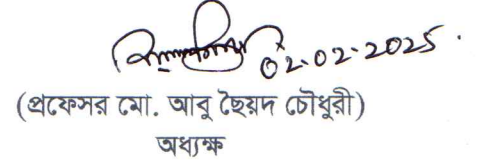 02.02.2025.
(প্রফেসর মো. আবু ছৈয়দ চৌধুরী)
অধ্যক্ষ